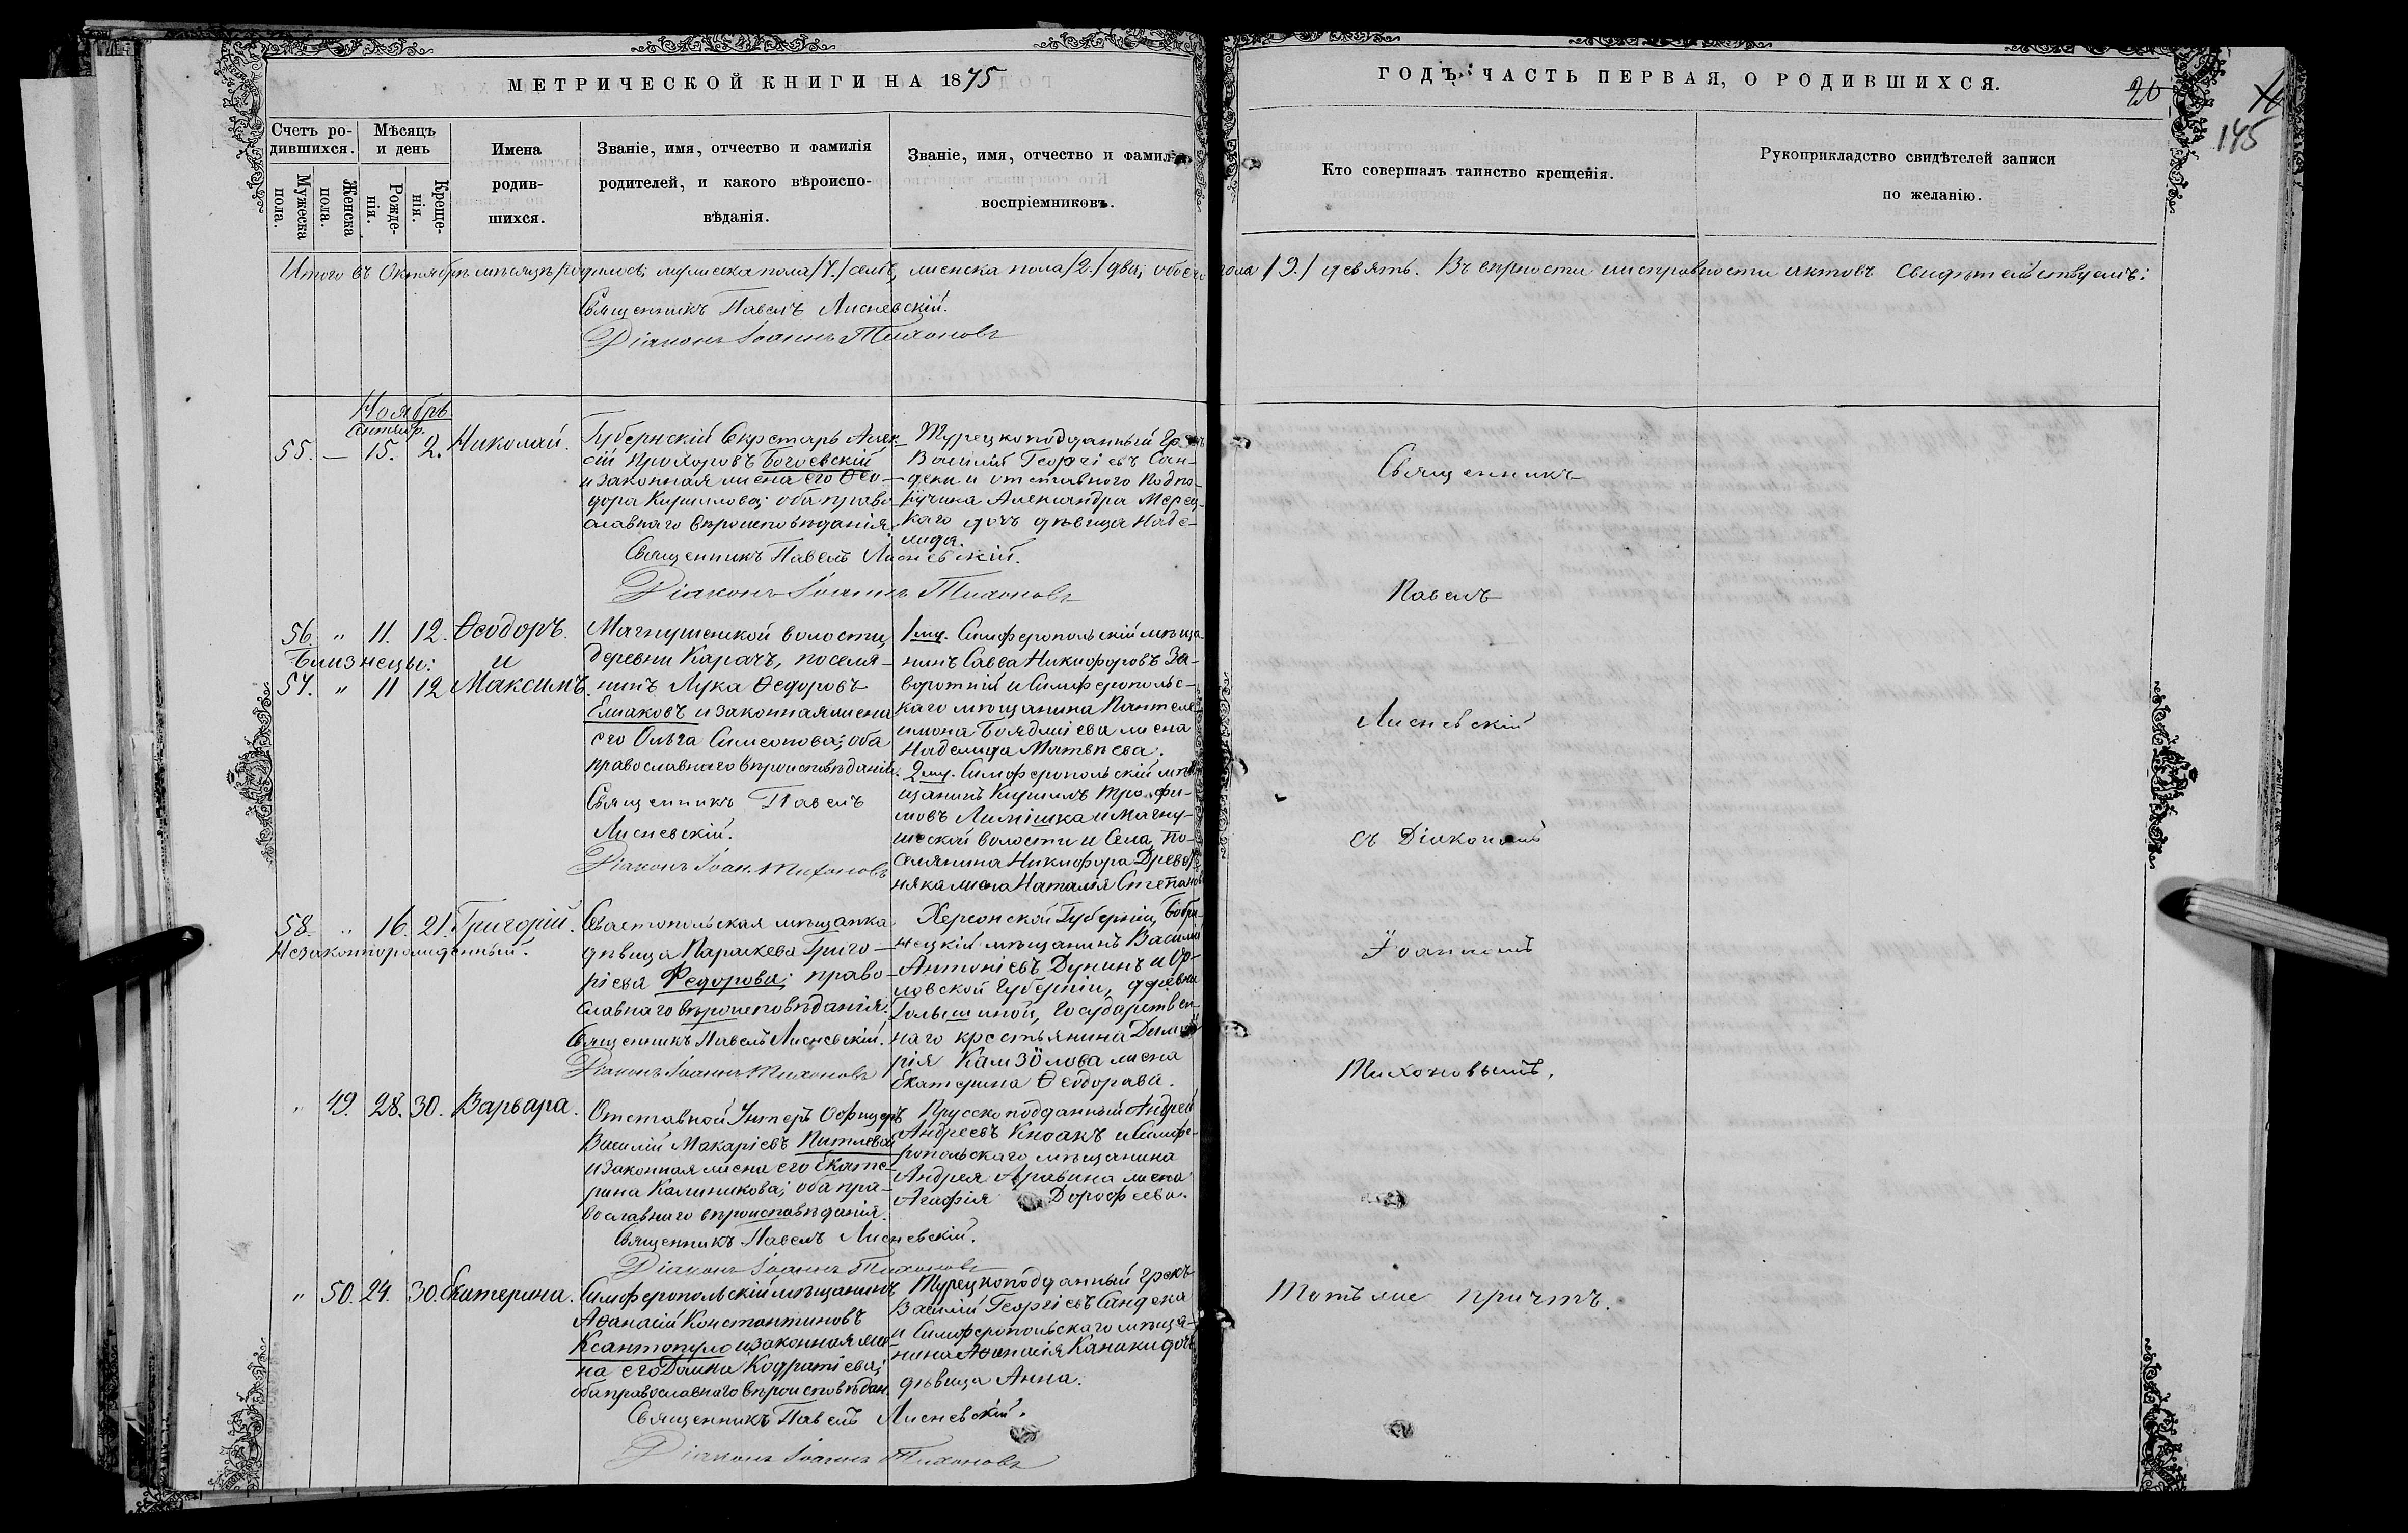 МЕТРИЧЕСКОЙ КНИГИ НА 1875
ГОДЪ. ЧАСТЬ ПЕРВАЯ, О РОДИВШИХСЯ.
20
145
Счетъ ро-
дившихся.
Мужеска пола.
Женска пола.
Мѣсяцъ
и день
Рожде-
нія.
Креще-
нія.
Имена
родив-
шихся.
Званіе, имя, отчество и фамилія
родителей, и какого вѣроиспо-
вѣданія.
Званіе, имя, отчество и фамилія
воспріемниковъ.
Кто совершалъ таинство крещенія.
Рукоприкладство свидѣтелей записи
по желанію.
Итого въ Октябрѣ мѣсяцѣ родилось; мужеска пола /7./ семь, женска пола /2./ два; обоего пола /9./ девять. Въ вѣрности и исправности актовъ свидѣтельствуемъ:
Священникъ Павелъ Лисневскій.
Діаконъ Іоаннъ Тихоновъ
Ноябрь
Сентябр.
55. — 15. 2. Николай.
Губернскій Секретарь Алек-
сій Прохоровъ Богоевскій
и законная жена его Ѳео-
дора Кириллова; оба право-
славнаго вѣроисповѣданія.
Священникъ Павелъ Лисневскій.
Діаконъ Іоаннъ Тихоновъ
Турецкоподданный Грекъ
Василій Георгіевъ Сан-
деки и отставного Подпо-
ручика Александра Мерец-
каго дочь дѣвица Наде-
жда.
56. " 11. 12. Ѳеодоръ.
Близнецы: и
57. " 11 12 Максимъ.
Мангушской волости,
деревни Карачъ, поселя-
нинъ Лука Ѳедоровъ
Ешаковъ и законная жена
его Ольга Симеонова; оба
православнаго вѣроисповѣданія.
Священникъ Павелъ
Лисневскій.
Діаконъ Іоан. Тихоновъ
1му. Симферопольскій мѣща-
нинъ Савва Никифоровъ За-
воротній и Симферопольс-
каго мѣщанина Пантеле-
имона Бояджіева жена
Надежда Матвѣева.
2му. Симферопольскій мѣ-
щанинъ Кириллъ Трофи-
мовъ Лимішка и Мангу-
шской волости и Села, по-
селянина Никифора Древет-
няка жена Наталія Степанов
58. " 16. 21. Григорій.
Незаконнорожденный.
Севастопольская мѣщанка
дѣвица Параскева Григо-
ріева Федорова; право-
славнаго вѣроисповѣданія.
Священникъ Павелъ Лисневскій.
Діаконъ Іоаннъ Тихоновъ
Херсонской Губерніи, Бобри-
нецкій мѣщанинъ Василій
Антоніевъ Дунинъ и Ор-
ловской Губерніи, деревни
Государствен-
наго крестьянина Димит-
рія Камзолова жена
Екатерина Ѳеодорова.
" 49. 28. 30. Варвара.
Отставной Унтеръ Офицеръ
Василій Макаріевъ Патлевой
и законная жена его Екате-
рина Калиникова; оба пра-
вославнаго вѣроисповѣданія.
Священникъ Павелъ Лисневскій.
Діаконъ Іоаннъ Тихоновъ
Прусскоподданный Андрей
Андреевъ Кноакъ и Симфе-
ропольскаго мѣщанина
Андрея Аравина жена
Агафія Дорофеева.
" 50. 24. 30. Екатерина.
Симферопольскій мѣщанинъ
Аѳанасій Константиновъ
Ксантопуло и законная же-
на его Домна Кодратіева;
оба православнаго вѣроисповѣдан.
Священникъ Павелъ Лисневскій.
Діаконъ Іоаннъ Тихоновъ
Турецкоподданный грекъ
Василій Георгіевъ Сандека
и Симферопольскаго мѣща-
нина Аѳанасія Канаки дочь
дѣвица Анна.
Священникъ
Павелъ
Лисневскій
съ Діакономъ
Іоанномъ
Тихоновымъ.
Тотъ же причтъ.